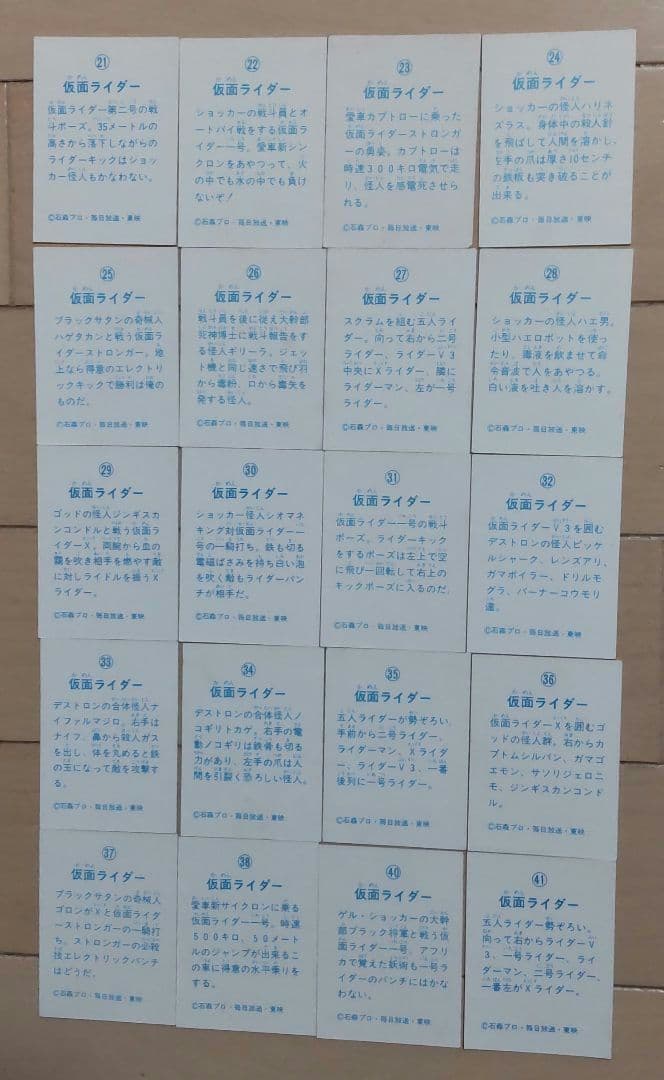 21
仮面ライダー
仮面ライダー第二号の戦
斗ポーズ。35メートルの
高さから落下しながらの
ライダーキックはショッ
カー怪人もかなわない。
©石森プロ・毎日放送・東映
22
仮面ライダー
ショッカーの戦斗員とオ
ートバイ戦をする仮面ライ
ダー一号。愛車新サイ
クロンをあやつって、火
の中でも水の中でも負け
ないぞ!
©石森プロ・毎日放送・東映
23
仮面ライダー
愛車カブトローに乗った
仮面ライダーストロンガ
ーの勇姿。カブトローは
時速300キロ電気で走
り、怪人を感電死させら
れる。
©石森プロ・毎日放送・東映
24
仮面ライダー
ショッカーの怪人ハリネ
ズラス。身体中の殺人針
を飛ばして人間を溶かし、
左手の爪は厚さ10センチ
の鉄板も突き破ることが
出来る。
©石森プロ・毎日放送・東映
25
仮面ライダー
ブラックサタンの奇械人
ハゲタカンと戦う仮面ラ
イダーストロンガー。地
上なら得意のエレクトリ
ックキックで勝利は俺の
ものだ。
©石森プロ・毎日放送・東映
26
仮面ライダー
戦斗員を後に従え大幹部
死神博士に戦斗報告をす
る怪人ギリーラ。ジェッ
ト機と同じ速さで飛び羽
から毒粉、口から毒矢を
発する怪人。
©石森プロ・毎日放送・東映
27
仮面ライダー
スクラムを組む五人ライ
ダー。向って右から二号
ライダー、ライダーV3
中央にXライダー、隣に
ライダーマン、左が一号
ライダー。
©石森プロ・毎日放送・東映
28
仮面ライダー
ショッカーの怪人ハエ男。
小型ハエロボットを使っ
たり、毒液を飲ませて命
令音波で人をあやつる。
白い液を吐き人を溶かす。
©石森プロ・毎日放送・東映
29
仮面ライダー
ゴッドの怪人ジンギスカ
ンコンドルと戦う仮面ラ
イダーX。両腕から血の
霧を吹き相手を燃やす敵
に対しライドルを振うX
ライダー。
©石森プロ・毎日放送・東映
30
仮面ライダー
ショッカー怪人シオマネ
キング対仮面ライダー一
号の一騎打ち。鉄も切る
電磁ばさみを持ち白い泡
を吹く敵もライダーパン
チが相手だ。
©石森プロ・毎日放送・東映
31
仮面ライダー
仮面ライダー一号の戦斗
ポーズ。ライダーキック
をするポーズは左上で空
に飛び一回転して右上の
キックポーズに入るのだ
©石森プロ・毎日放送・東映
32
仮面ライダー
仮面ライダーV3を囲む
デストロンの怪人ピッケ
ルシャーク、レンズアリ、
ガマボイラー、ドリルモ
グラ、バーナーコウモリ
達。
©石森プロ・毎日放送・東映
33
仮面ライダー
デストロンの合体怪人ナ
イフアルマジロ。右手は
ナイフ、鼻から殺人ガス
を出し、体を丸めると鉄
の玉になって敵を攻撃す
る。
©石森プロ・毎日放送・東映
34
仮面ライダー
デストロンの合体怪人ノ
コギリトカゲ。右手の電
動ノコギリは鉄骨も切る
力があり、左手の爪は人
間を引裂く恐ろしい怪人。
©石森プロ・毎日放送・東映
35
仮面ライダー
五人ライダーが勢ぞろい。
手前から二号ライダー、
ライダーマン、Xライダ
ー、ライダーV3、一番
後列に一号ライダー。
©石森プロ・毎日放送・東映
36
仮面ライダー
仮面ライダーXを囲むゴ
ッドの怪人群。右からカ
ブトムシルパン、ガマゴ
エモン、サソリジェロニ
モ、ジンギスカンコンド
ル。
©石森プロ・毎日放送・東映
37
仮面ライダー
ブラックサタンの奇械人
ゴロンガメと仮面ライダ
ーストロンガーの一騎打
ち。ストロンガーの必殺
技エレクトリックパンチ
はどうだ。
©石森プロ・毎日放送・東映
38
仮面ライダー
愛車新サイクロンに乗る
仮面ライダー一号。時速
500キロ、50メート
ルのジャンプが出来るこ
の車に得意の水平乗りを
する。
©石森プロ・毎日放送・東映
40
仮面ライダー
ゲル・ショッカーの大幹
部ブラック将軍と戦う仮
面ライダー一号。アフリ
カで覚えた妖術も一号ラ
イダーのパンチにはかな
わない。
©石森プロ・毎日放送・東映
41
仮面ライダー
五人ライダー勢ぞろい。
向って右からライダーV
3、一号ライダー、ライ
ダーマン、二号ライダー、
一番左がXライダー。
©石森プロ・毎日放送・東映